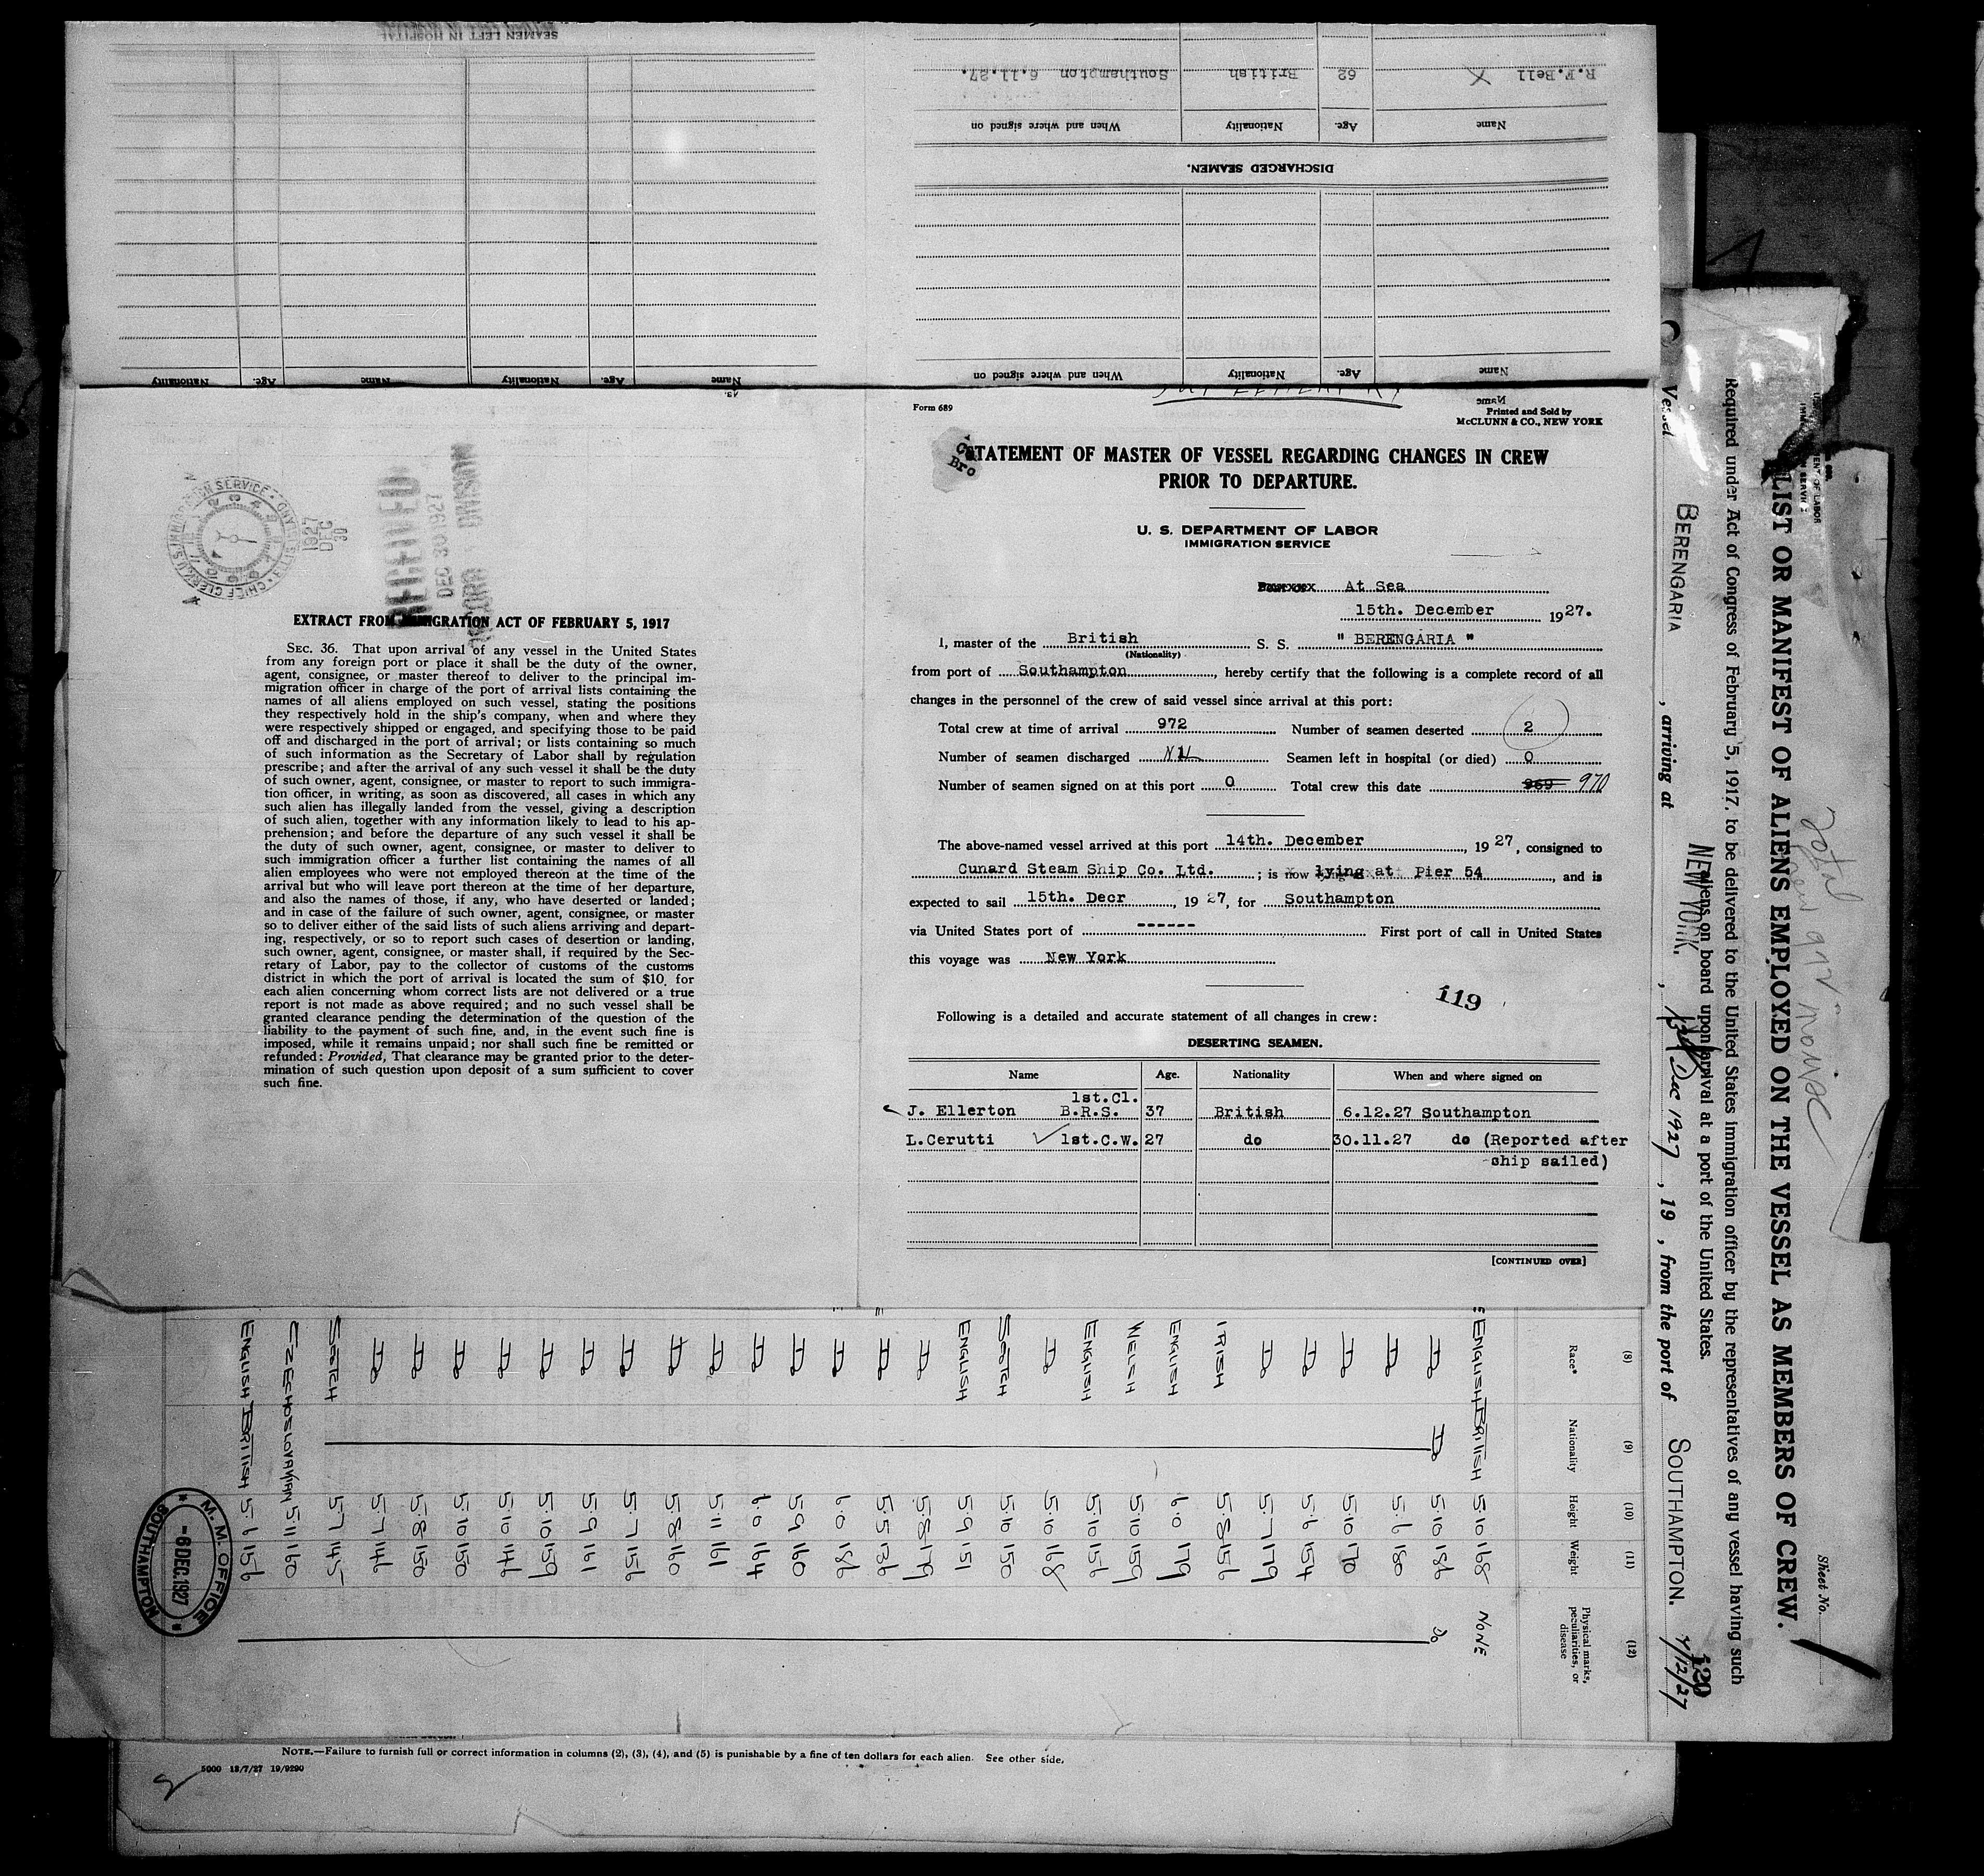 SEAMEN LEFT IN HOSPITAL
Name Age. Nationality Name Age. Nationality
R.F.Bell X 62 British Southampton 6.11.27.
Name Age. Nationality When and where signed on
DISCHARGED SEAMEN.
Name Age. Nationality When and where signed on
Name
Form 689
Printed and Sold by
McCLUNN & CO., NEW YORK
STATEMENT OF MASTER OF VESSEL REGARDING CHANGES IN CREW
PRIOR TO DEPARTURE.
U. S. DEPARTMENT OF LABOR
IMMIGRATION SERVICE
At Sea
15th. December 1927.
I, master of the British S. S. " BERENGARIA "
(Nationality)
from port of Southampton, hereby certify that the following is a complete record of all
changes in the personnel of the crew of said vessel since arrival at this port:
Total crew at time of arrival 972 Number of seamen deserted 2
Number of seamen discharged NIL Seamen left in hospital (or died) 0
Number of seamen signed on at this port 0 Total crew this date 969 970
The above-named vessel arrived at this port 14th. December, 19 27, consigned to
Cunard Steam Ship Co. Ltd. ; is now lying at Pier 54, and is
expected to sail 15th. Decr, 19 27, for Southampton
via United States port of ------ First port of call in United States
this voyage was New York
119
Following is a detailed and accurate statement of all changes in crew:
DESERTING SEAMEN.
Name Age. Nationality When and where signed on
1st.Cl.
J. Ellerton B.R.S. 37 British 6.12.27 Southampton
L.Cerutti 1st.C.W. 27 do 30.11.27 do (Reported after
ship sailed)
[CONTINUED OVER]
CHIEF CLERK, U.S. IMMIGRATION SERVICE, ELLIS ISLAND
1927
DEC
30
RECEIVED
DEC 30 1927
RECORD DIVISION
EXTRACT FROM IMMIGRATION ACT OF FEBRUARY 5, 1917
SEC. 36. That upon arrival of any vessel in the United States
from any foreign port or place it shall be the duty of the owner,
agent, consignee, or master thereof to deliver to the principal im-
migration officer in charge of the port of arrival lists containing the
names of all aliens employed on such vessel, stating the positions
they respectively hold in the ship's company, when and where they
were respectively shipped or engaged, and specifying those to be paid
off and discharged in the port of arrival; or lists containing so much
of such information as the Secretary of Labor shall by regulation
prescribe; and after the arrival of any such vessel it shall be the duty
of such owner, agent, consignee, or master to report to such immigra-
tion officer, in writing, as soon as discovered, all cases in which any
such alien has illegally landed from the vessel, giving a description
of such alien, together with any information likely to lead to his ap-
prehension; and before the departure of any such vessel it shall be
the duty of such owner, agent, consignee, or master to deliver to
such immigration officer a further list containing the names of all
alien employees who were not employed thereon at the time of the
arrival but who will leave port thereon at the time of her departure,
and also the names of those, if any, who have deserted or landed;
and in case of the failure of such owner, agent, consignee, or master
so to deliver either of the said lists of such aliens arriving and depart-
ing, respectively, or so to report such cases of desertion or landing,
such owner, agent, consignee, or master shall, if required by the Sec-
retary of Labor, pay to the collector of customs of the customs
district in which the port of arrival is located the sum of $10 for
each alien concerning whom correct lists are not delivered or a true
report is not made as above required; and no such vessel shall be
granted clearance pending the determination of the question of the
liability to the payment of such fine, and, in the event such fine is
imposed, while it remains unpaid; nor shall such fine be remitted or
refunded: Provided, That clearance may be granted prior to the deter-
mination of such question upon deposit of a sum sufficient to cover
such fine.
Sheet No.
LIST OR MANIFEST OF ALIENS EMPLOYED ON THE VESSEL AS MEMBERS OF CREW.
Required under Act of Congress of February 5, 1917, to be delivered to the United States immigration officer by the representatives of any vessel having such
aliens on board upon arrival at a port of the United States.
120
Vessel BERENGARIA, arriving at NEW YORK., Dec 1927, 19 , from the port of SOUTHAMPTON. 7/12/27
(8) (9) (10) (11) (12)
Race* Nationality Height Weight Physical marks, peculiarities, or disease
ENGLISH BRITISH 5.10 168 NONE
Do Do 5.10 186 Do
Do 5.6 180
Do 5.10 170
Do 5.6 154
Do 5.7 179
IRISH 5.8 156
ENGLISH 6.0 179
WELSH 5.10 159
ENGLISH 5.10 156
Do 5.10 168
SCOTCH 5.10 150
ENGLISH 5.9 151
Do 5.8 179
Do 5.5 136
Do 6.0 186
Do 5.9 160
Do 6.0 164
Do 5.11 161
Do 5.8 160
Do 5.7 156
Do 5.9 161
Do 5.10 159
Do 5.10 146
Do 5.10 150
Do 5.8 150
Do 5.7 146
SCOTCH 5.7 145
CZECHOSLOVAKIAN 5.11 160
ENGLISH BRITISH 5.6 156
M. M. OFFICE
-6 DEC. 1927
SOUTHAMPTON
NOTE.—Failure to furnish full or correct information in columns (2), (3), (4), and (5) is punishable by a fine of ten dollars for each alien. See other side.
5000 13/7/27 19/9290